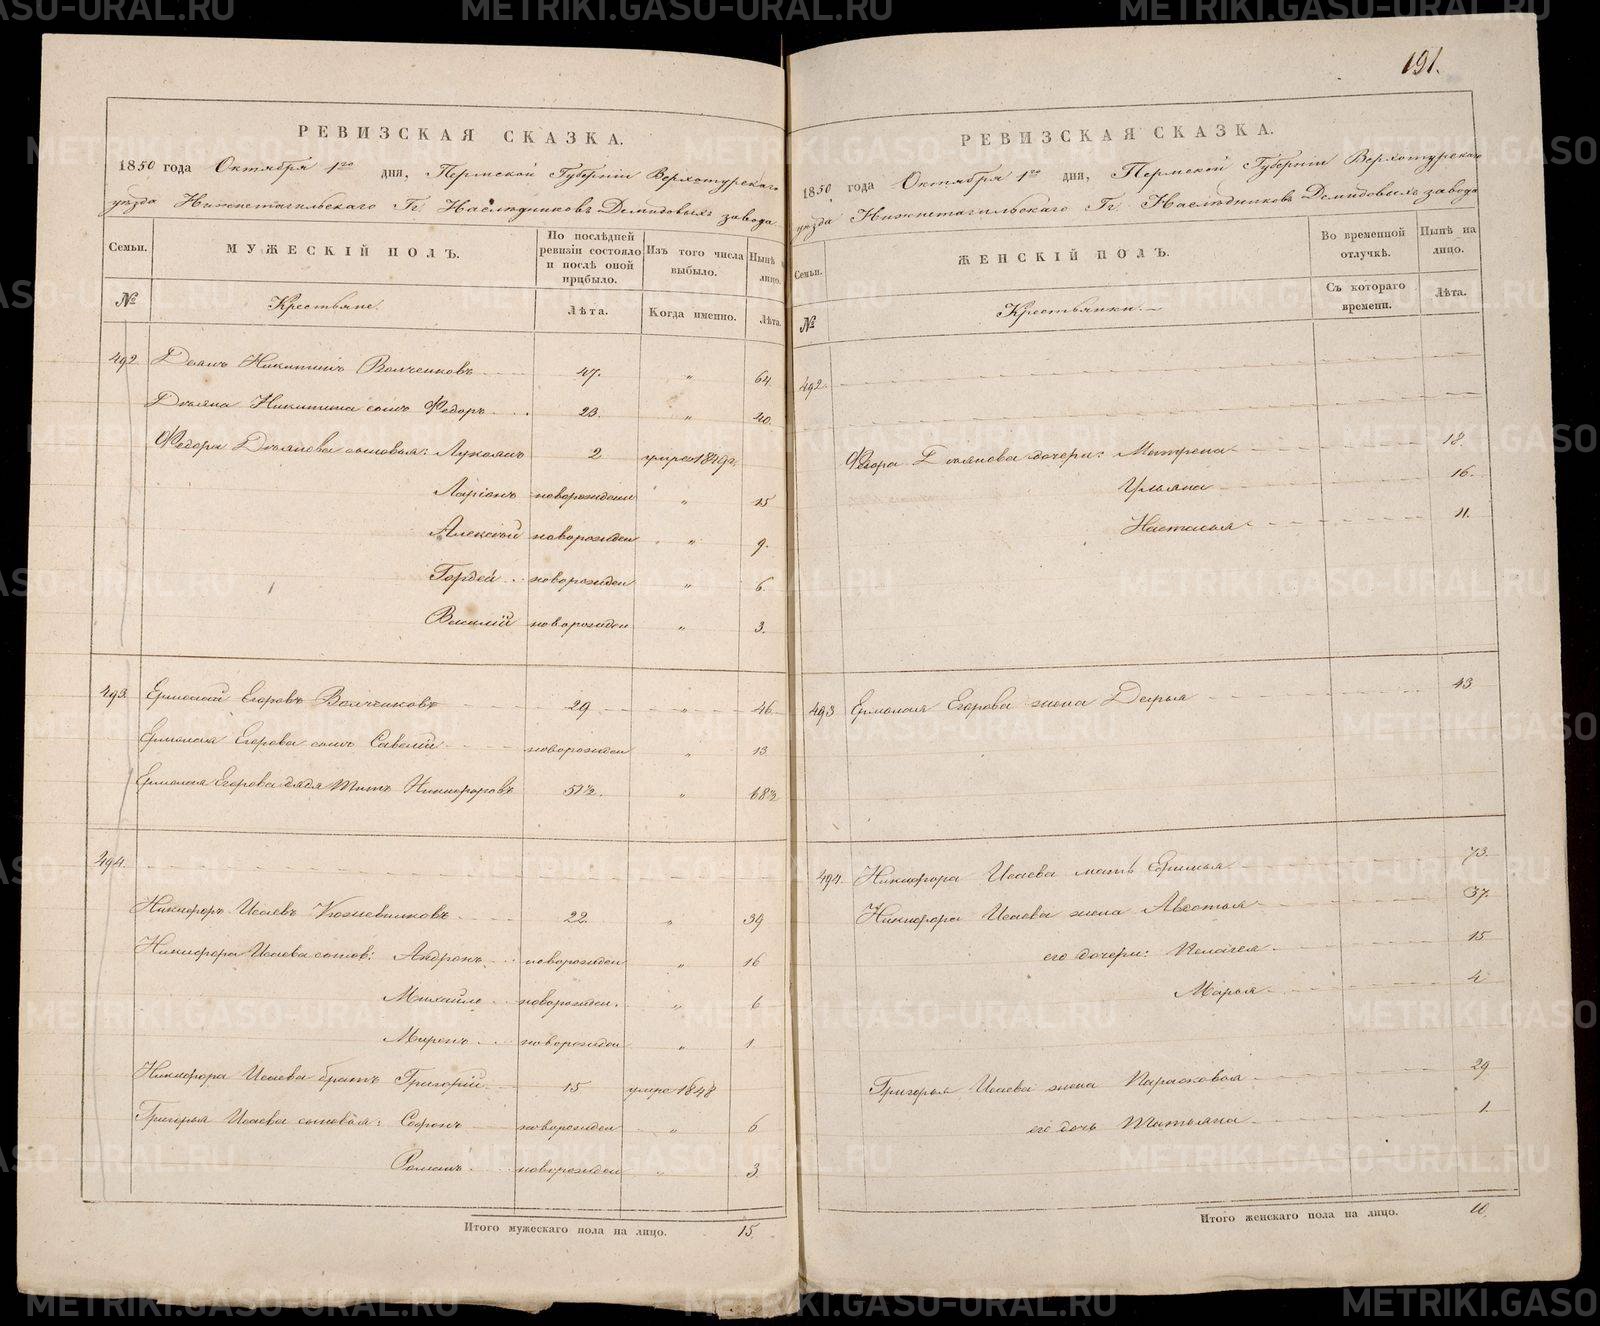 191.
РЕВИЗСКАЯ СКАЗКА.
1850 года Октября 1го дня, Пермской Губерніи Верхотурскаго
уѣзда Нижнетагильскаго Гг. Наслѣдниковъ Демидовыхъ завода
Семьи. МУЖЕСКІЙ ПОЛЪ. По послѣдней ревизіи состояло и послѣ оной прибыло. Изъ того числа выбыло. Нынѣ на лицо.
№ Крестьяне. Лѣта. Когда именно. Лѣта.
492 Никитинъ Волченковъ 47. " 64.
Никитина сынъ Федоръ 23. " 40.
Федора сыновья: Лукоянъ 2 умре 1849
Ларіонъ новорожден " 15
Алексѣй новорожден " 9.
Гордей новорожден " 6.
Василій новорожден " 3.
493. Ермолай Егоровъ Волченковъ 29 " 46.
Ермолая Егорова сынъ Савелій новорожден " 13
Ермолая Егорова дядя Титъ Никифоровъ 51½. " 68½
494.
Никифоръ Исаевъ Кожевниковъ 22. " 39
Никифора Исаева сынов: Андронъ новорожден " 16
Михайло новорожден. " 6
Миронъ новорожден " 1
Никифора Исаева братъ Григорій 15 умре 1848
Григорья Исаева сыновья: Софонъ новорожден " 6
Романъ новорожден " 3.
Итого мужескаго пола на лицо. 15.
РЕВИЗСКАЯ СКАЗКА.
1850 года Октября 1го дня, Пермской Губерніи Верхотурскаго
уѣзда Нижнетагильскаго Гг. Наслѣдниковъ Демидовыхъ завода
Семьи. ЖЕНСКІЙ ПОЛЪ. Во временной отлучкѣ. Нынѣ на лицо.
№ Крестьянки. Съ котораго времени. Лѣта.
492.
Федора дочери: Матрена 18.
Ульяна 16.
Настасья 11.
493 Ермолая Егорова жена Дарья 43
494. Никифора Исаева мать Ефимья 73.
Никифора Исаева жена Авдотья 37.
его дочери: Пелагея 15
Марья 4
Григорья Исаева жена Парасковья 29
его дочь Татьяна 1.
Итого женскаго пола на лицо. 10.
METRIKI.GASO-URAL.RU